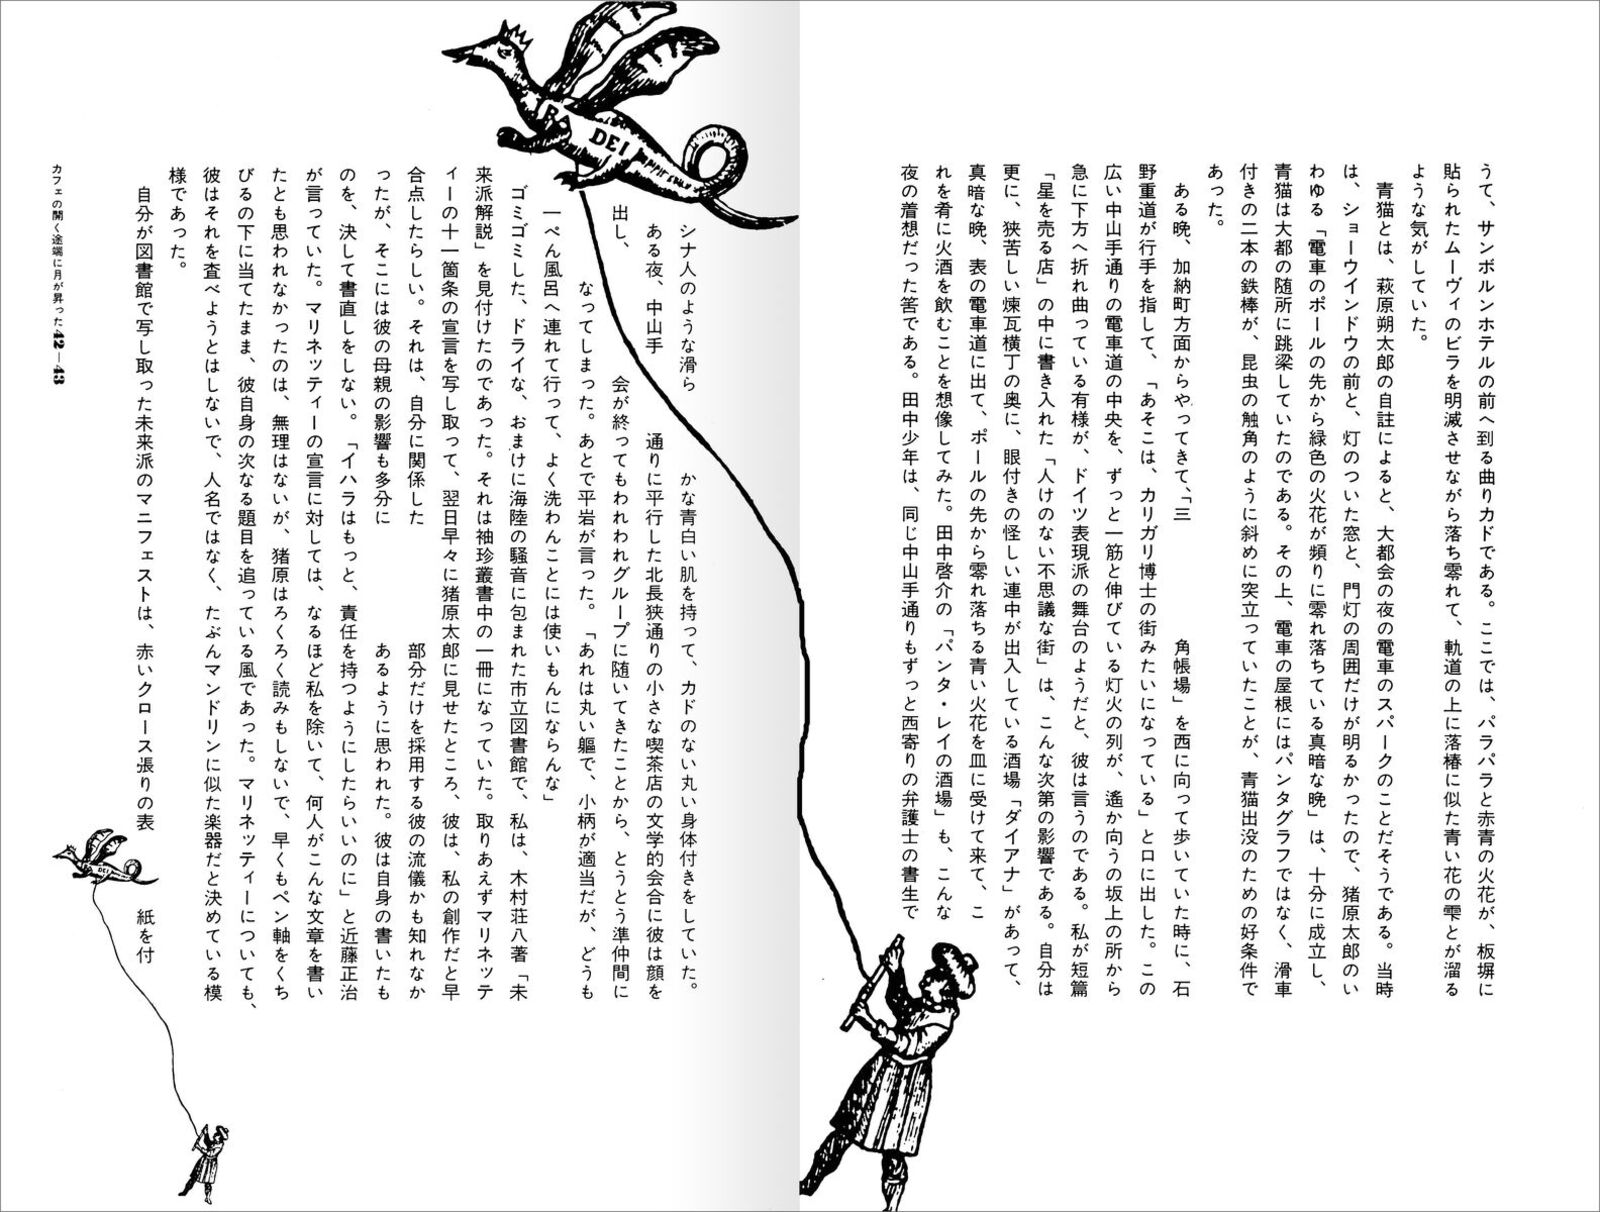 うて、サンボルンホテルの前へ到る曲りカドである。ここでは、パラパラと赤青の火花が、板塀に
貼られたムーヴィのビラを明滅させながら落ち零れて、軌道の上に落椿に似た青い花の雫とが溜る
ような気がしていた。
青猫とは、萩原朔太郎の自註によると、大都会の夜の電車のスパークのことだそうである。当時
は、ショーウインドウの前と、灯のついた窓と、門灯の周囲だけが明るかったので、猪原太郎のい
わゆる「電車のポールの先から緑色の火花が頻りに零れ落ちている真暗な晩」は、十分に成立し、
青猫は大都の随所に跳梁していたのである。その上、電車の屋根にはパンタグラフではなく、滑車
付きの二本の鉄棒が、昆虫の触角のように斜めに突立っていたことが、青猫出没のための好条件で
あった。
ある晩、加納町方面からやってきて、「三角帳場」を西に向って歩いていた時に、石
野重道が行手を指して、「あそこは、カリガリ博士の街みたいになっている」と口に出した。この
広い中山手通りの電車道の中央を、ずっと一筋と伸びている灯火の列が、遙か向うの坂上の所から
急に下方へ折れ曲っている有様が、ドイツ表現派の舞台のようだと、彼は言うのである。私が短篇
「星を売る店」の中に書き入れた「人けのない不思議な街」は、こんな次第の影響である。自分は
更に、狭苦しい煉瓦横丁の奥に、眼付きの怪しい連中が出入している酒場「ダイアナ」があって、
真暗な晩、表の電車道に出て、ポールの先から零れ落ちる青い火花を皿に受けて来て、こ
れを肴に火酒を飲むことを想像してみた。田中啓介の「パンタ・レイの酒場」も、こんな
夜の着想だった筈である。田中少年は、同じ中山手通りもずっと西寄りの弁護士の書生で
シナ人のような滑らかな青白い肌を持って、カドのない丸い身体付きをしていた。
ある夜、中山手通りに平行した北長狭通りの小さな喫茶店の文学的会合に彼は顔を
出し、会が終ってもわれわれグループに随いてきたことから、とうとう準仲間に
なってしまった。あとで平岩が言った。「あれは丸い軀で、小柄が適当だが、どうも
一ぺん風呂へ連れて行って、よく洗わんことには使いもんにならんな」
ゴミゴミした、ドライな、おまけに海陸の騒音に包まれた市立図書館で、私は、木村荘八著「未
来派解説」を見付けたのであった。それは袖珍叢書中の一冊になっていた。取りあえずマリネッテ
ィーの十一箇条の宣言を写し取って、翌日早々に猪原太郎に見せたところ、彼は、私の創作だと早
合点したらしい。それは、自分に関係した部分だけを採用する彼の流儀かも知れなか
ったが、そこには彼の母親の影響も多分にあるように思われた。彼は自身の書いたも
のを、決して書直しをしない。「イハラはもっと、責任を持つようにしたらいいのに」と近藤正治
が言っていた。マリネッティーの宣言に対しては、なるほど私を除いて、何人がこんな文章を書い
たとも思われなかったのは、無理はないが、猪原はろくろく読みもしないで、早くもペン軸をくち
びるの下に当てたまま、彼自身の次なる題目を追っている風であった。マリネッティーについても、
彼はそれを査べようとはしないで、人名ではなく、たぶんマンドリンに似た楽器だと決めている模
様であった。
自分が図書館で写し取った未来派のマニフェストは、赤いクロース張りの表紙を付
カフェの開く途端に月が昇った 42—43
IRA DEI